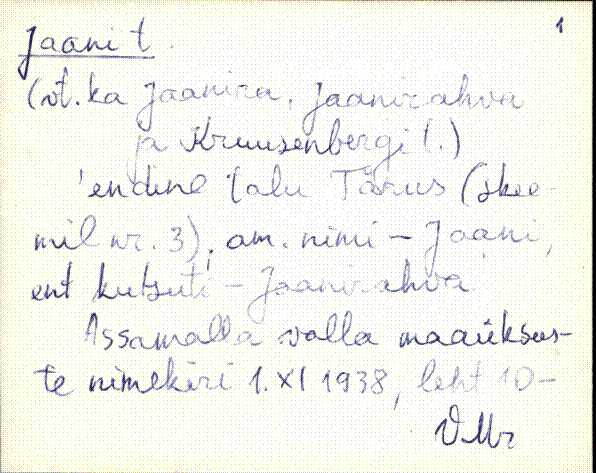 1
Jaani t.
(vt. ka Jaanira, Jaanirahva
ja Kruusenbergi t.)
'endine talu Tarus (skee-
mil nr. 3), am. nimi - Jaani,
ent kutsuti - Jaanirahva
Assamalla valla maaüksus-
te nimekiri 1. XI 1938, leht 10-